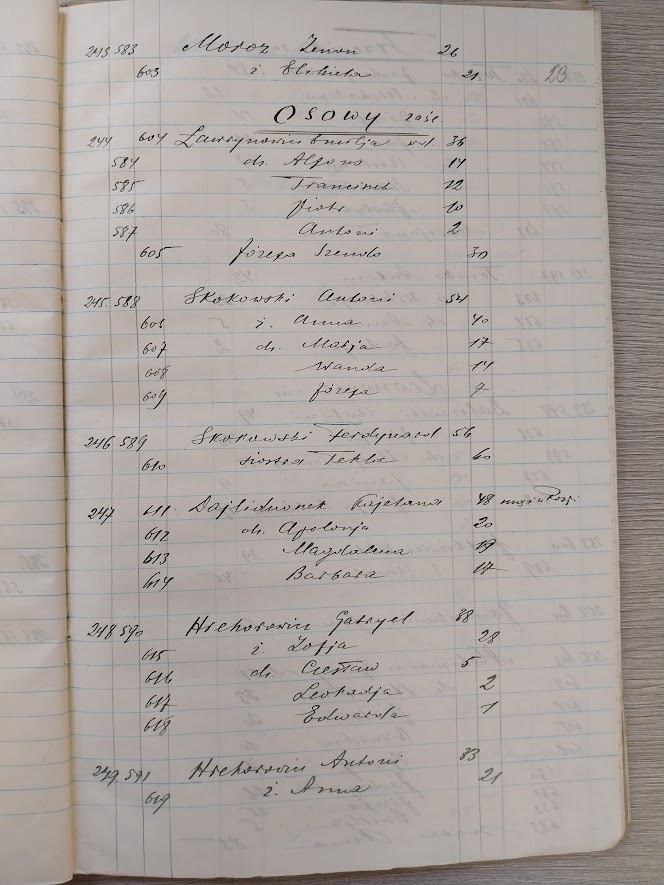 243 583 Moroz Zenon 26
603 ż. Elżbieta 21. 23
Osowy zaśc
244 604 Ławrynowicz Emilja wd 36
584 dz. Alfons 14
585 Franciszek 12
586 Piotr 10
587 Antoni 2
605 Józefa Szendo 30
245. 588 Skokowski Antoni 54
606 ż. Anna 40
607 dz. Marja 17
608 Wanda 14
609 Józefa 7
246 589 Skokowski Ferdynand 56
610 siostra Tekla 60
247 611 Dajlidzionek Kajetana 48 mąż w Rosji
612 dz. Apolonja 20
613 Magdalena 19
614 Barbara 17
248 590 Hrehorowicz Gabryel 38
615 ż. Zofja 28
616 dz. Czesław 5
617 Leokadja 2
618 Edwarda 1
249 591 Hrehorowicz Antoni 33
619 ż. Anna 21